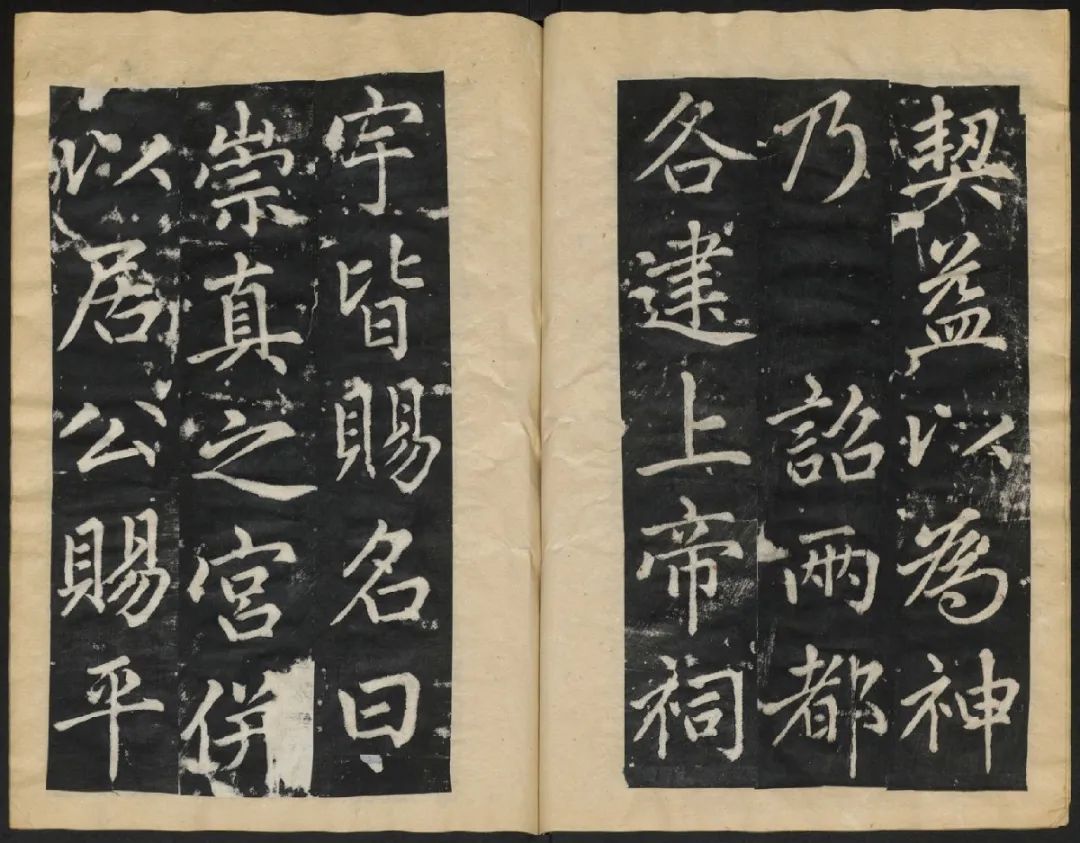 契益以為神
乃 詔兩都
各建上帝祠
宇皆賜名曰
崇真之宮併
以居公賜平